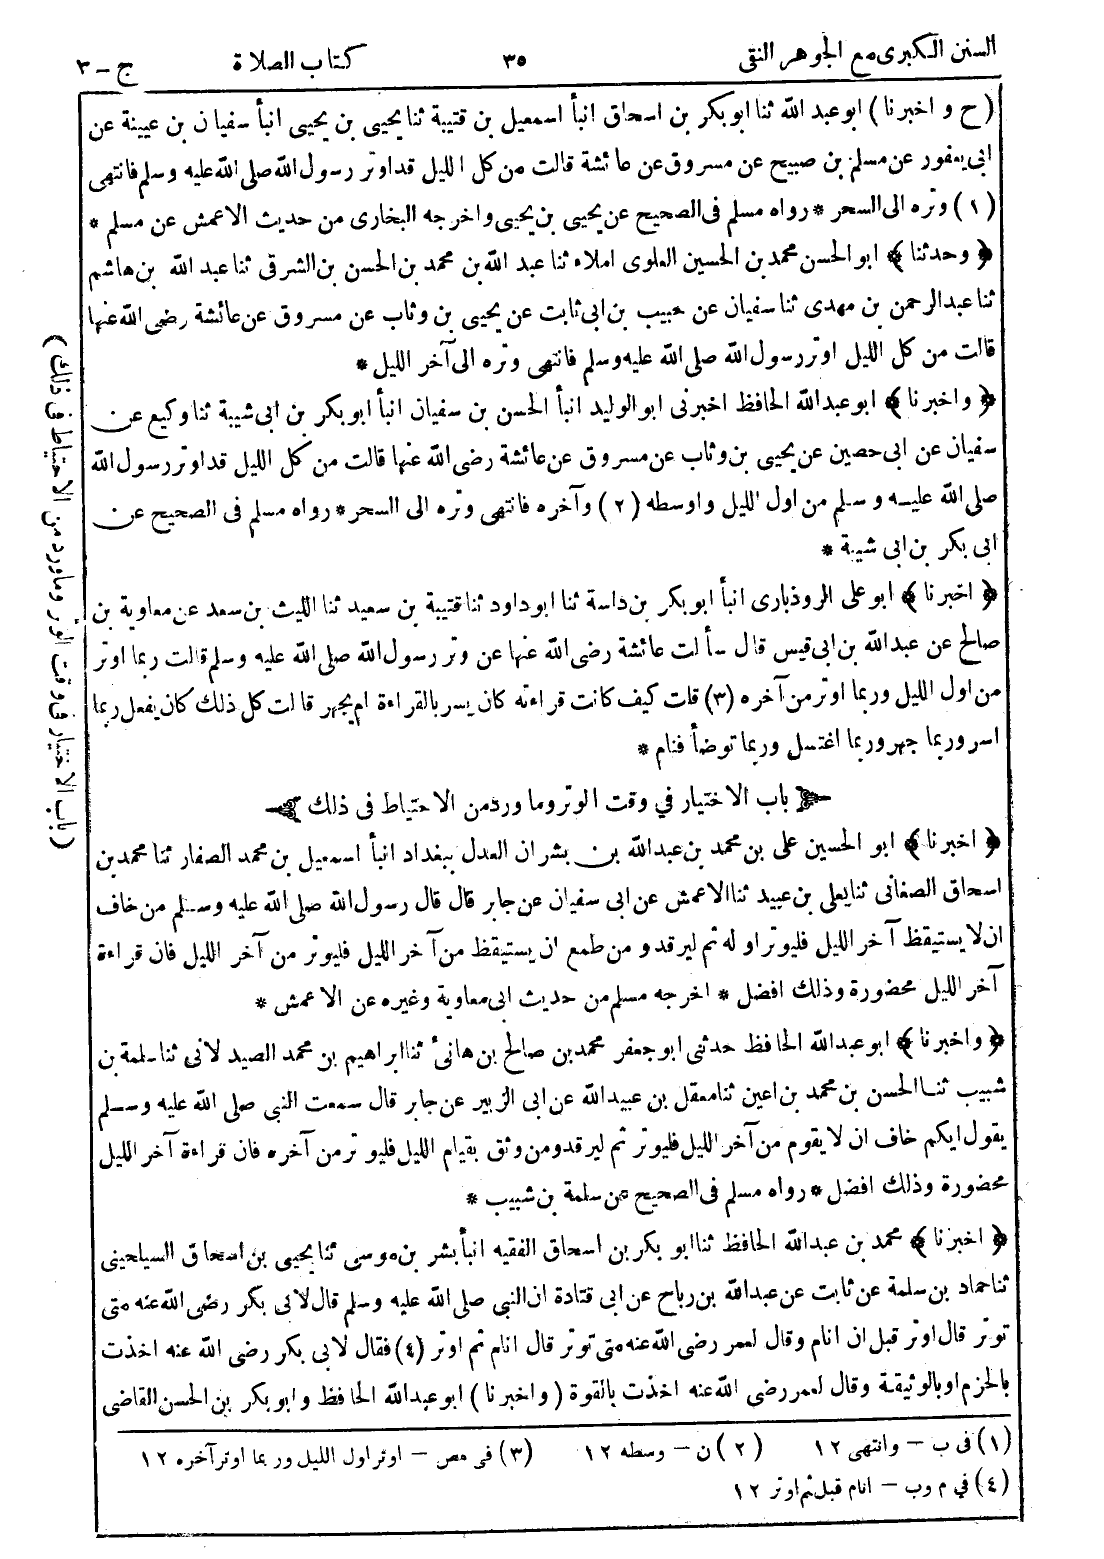 السنن الكبرى مع الجوهر النقى ٣٥ كتاب الصلاة ج – ٣
(ح و اخبرنا) ابو عبد الله ثنا ابو بكر بن اسحاق انبأ اسمعيل بن قتيبة ثنا يحيى بن يحيى انبأ سفيان بن عيينة عن
ابى يعفور عن مسلم بن صبيح عن مسروق عن عائشة قالت من كل الليل قد اوتر رسول الله صلى الله عليه وسلم فانتهى
(١) وتره الى السحر * رواه مسلم فى الصحيح عن يحيى بن يحيى واخرجه البخارى من حديث الاعمش عن مسلم *
﴿ وحدثنا ﴾ ابو الحسن محمد بن الحسين العلوى املاء ثنا عبد الله بن محمد بن الحسن بن الشرقى ثنا عبد الله بن هاشم
ثنا عبد الرحمن بن مهدى ثنا سفيان عن حبيب بن ابى ثابت عن يحيى بن وثاب عن مسروق عن عائشة رضى الله عنها
قالت من كل الليل اوتر رسول الله صلى الله عليه وسلم فانتهى وتره الى آخر الليل *
﴿ واخبرنا ﴾ ابو عبد الله الحافظ اخبرنى ابو الوليد انبأ الحسن بن سفيان انبأ ابو بكر بن ابى شيبة ثنا وكيع عن
سفيان عن ابى حصين عن يحيى بن وثاب عن مسروق عن عائشة رضى الله عنها قالت من كل الليل قد اوتر رسول الله
صلى الله عليه وسلم من اول الليل واوسطه (٢) وآخره فانتهى وتره الى السحر * رواه مسلم فى الصحيح عن
ابى بكر بن ابى شيبة *
﴿ اخبرنا ﴾ ابو على الروذبارى انبأ ابو بكر بن داسة ثنا ابو داود ثنا قتيبة بن سعيد ثنا الليث بن سعد عن معاوية بن
صالح عن عبد الله بن ابى قيس قال سألت عائشة رضى الله عنها عن وتر رسول الله صلى الله عليه وسلم قالت ربما اوتر
من اول الليل وربما اوتر من آخره (٣) قلت كيف كانت قراءته كان يسر بالقراءة ام يجهر قالت كل ذلك كان يفعل ربما
اسر وربما جهر وربما اغتسل وربما توضأ فنام *
باب الاختيار في وقت الوتر وما ورد من الاحتياط فى ذلك
﴿ اخبرنا ﴾ ابو الحسين على بن محمد بن عبد الله بن بشران العدل ببغداد انبأ اسمعيل بن محمد الصفار ثنا محمد بن
اسحاق الصغانى ثنا يعلى بن عبيد ثنا الاعمش عن ابى سفيان عن جابر قال قال رسول الله صلى الله عليه وسلم من خاف
ان لا يستيقظ آخر الليل فليوتر اوله ثم ليرقد ومن طمع ان يستيقظ من آخر الليل فليوتر من آخر الليل فان قراءة
آخر الليل محضورة وذلك افضل * اخرجه مسلم من حديث ابى معاوية وغيره عن الاعمش *
﴿ واخبرنا ﴾ ابو عبد الله الحافظ حدثنى ابو جعفر محمد بن صالح بن هانئ ثنا ابراهيم بن محمد الصيدلانى ثنا سلمة بن
شبيب ثنا الحسن بن محمد بن اعين ثنا معقل بن عبيد الله عن ابى الزبير عن جابر قال سمعت النبى صلى الله عليه وسلم
يقول ايكم خاف ان لا يقوم من آخر الليل فليوتر ثم ليرقد ومن وثق بقيام الليل فليوتر من آخره فان قراءة آخر الليل
محضورة وذلك افضل * رواه مسلم فى الصحيح عن سلمة بن شبيب *
﴿ اخبرنا ﴾ محمد بن عبد الله الحافظ ثنا ابو بكر بن اسحاق الفقيه انبأ بشر بن موسى ثنا يحيى بن اسحاق السيلحينى
ثنا حماد بن سلمة عن ثابت عن عبد الله بن رباح عن ابى قتادة ان النبى صلى الله عليه وسلم قال لابى بكر رضى الله عنه متى
توتر قال اوتر قبل ان انام وقال لعمر رضى الله عنه متى توتر قال انام ثم اوتر (٤) فقال لابى بكر رضى الله عنه اخذت
بالحزم او بالوثيقة وقال لعمر رضى الله عنه اخذت بالقوة (واخبرنا) ابو عبد الله الحافظ وابو بكر بن الحسن القاضى
(١) فى ب – وانتهى ١٢ (٢) ن – وسطه ١٢ (٣) فى مص – اوتر اول الليل وربما اوتر آخره ١٢
(٤) في م وب – انام قبل ثم اوتر ١٢
(باب الاختيار فى وقت الوتر وما ورد من الاحتياط فى ذلك)